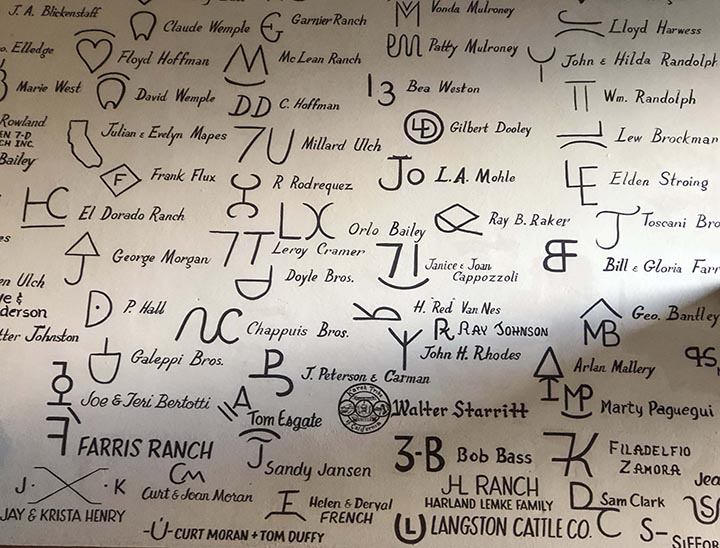 J. A. Blickenstaff
Claude Wemple
Garnier Ranch
Vonda Mulroney
Lloyd Harwess
Elledge
Floyd Hoffman
McLean Ranch
Patty Mulroney
John & Hilda Randolph
Marie West
David Wemple
DD C. Hoffman
13 Bea Weston
Wm. Randolph
Rowland
EN 7-D
CH INC.
Julian & Evelyn Mapes
7U Millard Ulch
Gilbert Dooley
Lew Brockman
Bailey
F Frank Flux
R Rodrequez
Jo L.A. Mohle
LE Elden Stroing
HC El Dorado Ranch
Orlo Bailey
Ray B. Raker
J Toscani Bro
George Morgan
7T Leroy Cramer
Janice & Joan
Cappozzoli
BF Bill & Gloria Farr
en Ulch
Doyle Bros.
derson
D P. Hall
H. "Red" Van Nes
Geo. Bantley
MB
tter Johnston
Chappuis Bros.
R Ray Johnson
Galeppi Bros.
John H. Rhodes
J. Peterson & Carman
Arlan Mallery
Joe & Teri Bertotti
A Tom Esgate
Walter Starritt
MP Marty Paguegui
F FARRIS RANCH
J Sandy Jansen
3-B Bob Bass
K FILADELFIO
ZAMORA
J. .K
JAY & KRISTA HENRY
CM
Curt & Joan Moran
Helen & Derval
FRENCH
JHL RANCH
HARLAND LEMKE FAMILY
D Sam Clark
-U- CURT MORAN + TOM DUFFY
L LANGSTON CATTLE CO.
C
S-